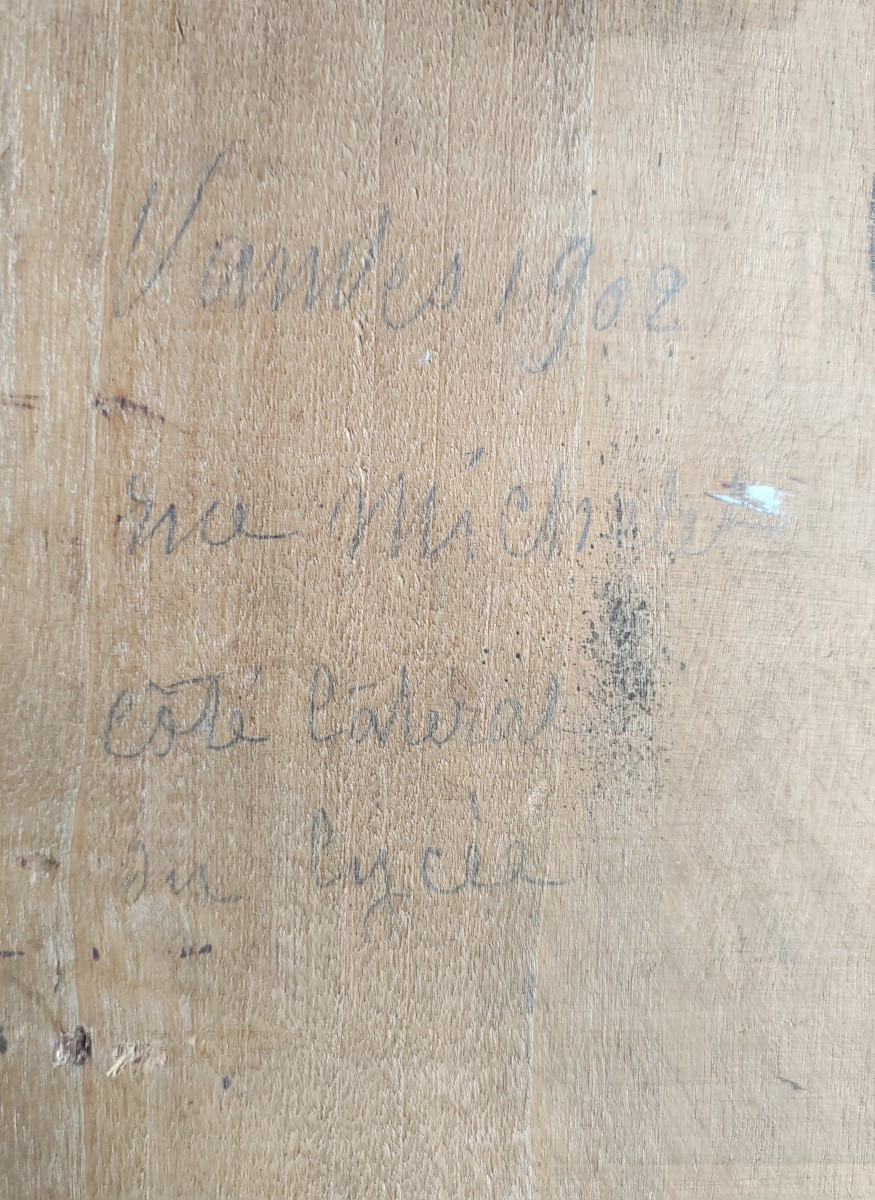 Vanves 1902
rue Michelet
côté latéral
du lycée